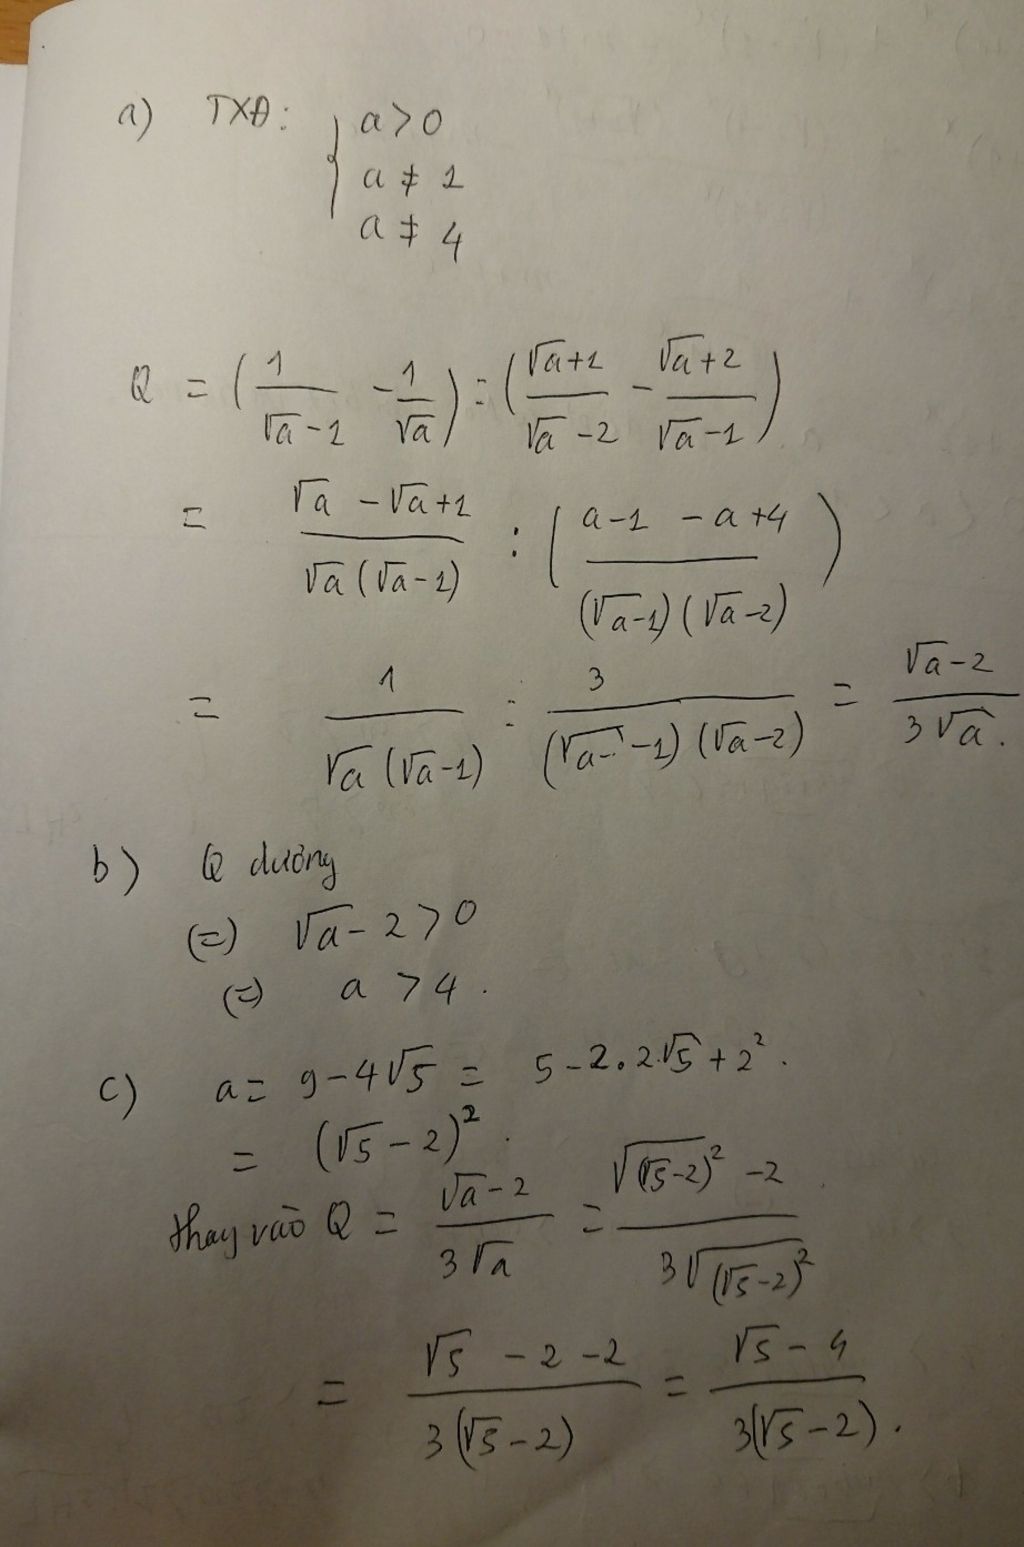 a) TXĐ: { a > 0
a ≠ 1
a ≠ 4
Q = ( 1/(√a - 1) - 1/√a ) : ( (√a + 1)/(√a - 2) - (√a + 2)/(√a - 1) )
= (√a - √a + 1)/(√a (√a - 1)) : ( (a - 1 - a + 4)/((√a - 1)(√a - 2)) )
= 1/(√a (√a - 1)) : 3/((√a - 1)(√a - 2)) = (√a - 2)/(3√a).
b) Q dương
(=) √a - 2 > 0
(=) a > 4.
c) a = 9 - 4√5 = 5 - 2.2.√5 + 2².
= (√5 - 2)².
thay vào Q = (√a - 2)/(3√a) = (√(√5 - 2)² - 2)/(3√(√5 - 2)²)
= (√5 - 2 - 2)/(3(√5 - 2)) = (√5 - 4)/(3(√5 - 2)).